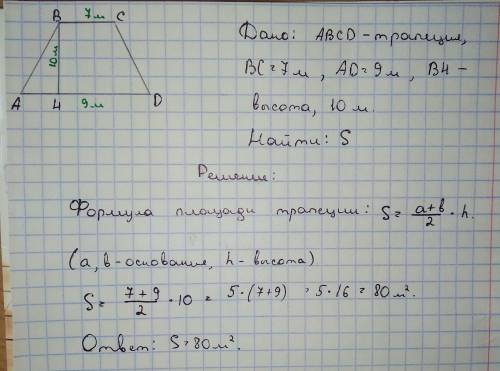 7м
B C
10м
A 4 9м D
Дано: ABCD - трапеция,
BC = 7м, AD = 9м, B4 -
высота, 10 м.
Найти: S
Решение:
Формула площади трапеции: S = (a+b)/2 · h.
(a, b - основание, h - высота)
S = (7+9)/2 · 10 = 5·(7+9) = 5·16 = 80м².
Ответ: S = 80м².